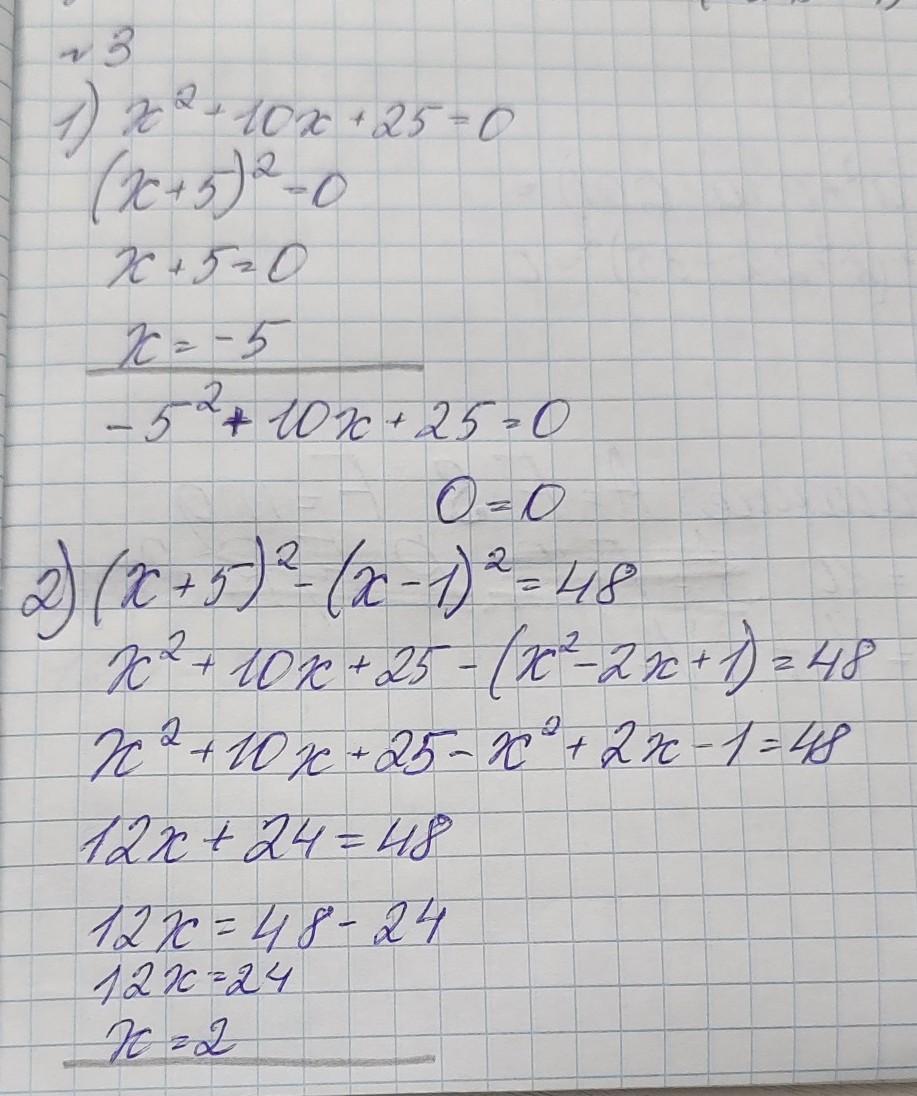 №3
1) x² + 10x + 25 = 0
(x+5)² = 0
x + 5 = 0
x = -5
-5² + 10x + 25 = 0
0 = 0
2) (x+5)² - (x-1)² = 48
x² + 10x + 25 - (x² - 2x + 1) = 48
x² + 10x + 25 - x² + 2x - 1 = 48
12x + 24 = 48
12x = 48 - 24
12x = 24
x = 2